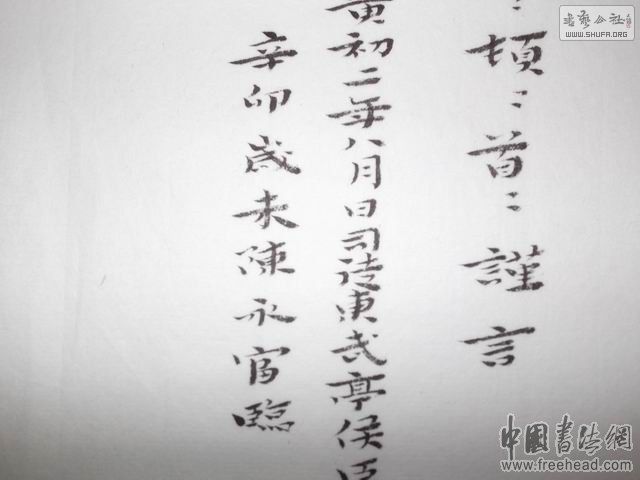 頓〻首〻謹言
黄初二年八月日司徒東武亭侯臣
辛卯歲末陳永官臨
書藝公社
WWW.SHUFA.ORG
中國書法網
www.freehead.com